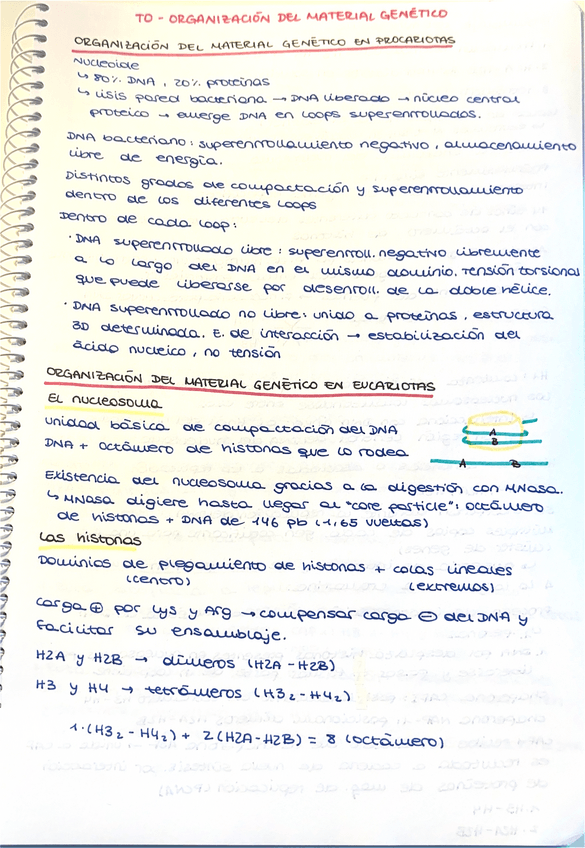 T0 - ORGANIZACIÓN DEL MATERIAL GENÉTICO
ORGANIZACIÓN DEL MATERIAL GENÉTICO EN PROCARIOTAS
Nucleoide
↳ 80% DNA, 20% proteínas
↳ lisis pared bacteriana → DNA liberado → núcleo central
proteico → emerge DNA en loops superenrollados.
DNA bacteriano: superenrollamiento negativo, almacenamiento
libre de energía.
Distintos grados de compactación y superenrollamiento
dentro de los diferentes loops
Dentro de cada loop:
· DNA superenrollado libre: superenroll. negativo, libremente
a lo largo del DNA en el mismo dominio. Tensión torsional
que puede liberarse por desenroll. de la doble hélice.
· DNA superenrollado no libre: unido a proteínas, estructura
3D determinada. E. de interacción → estabilización del
ácido nucleico, no tensión
ORGANIZACIÓN DEL MATERIAL GENÉTICO EN EUCARIOTAS
El nucleosoma
Unidad básica de compactación del DNA
DNA + octámero de histonas que lo rodea
A
B
A B
Existencia del nucleosoma gracias a la digestión con MNasa.
↳ MNasa digiere hasta llegar al "core particle": octámero
de histonas + DNA de 146 pb (1,65 vueltas)
Las histonas
Dominios de plegamiento de histonas + colas lineales
(centro) (extremos)
Carga ⊕ por Lys y Arg → compensar carga ⊖ del DNA y
facilitar su ensamblaje.
H2A y H2B → dímeros (H2A-H2B)
H3 y H4 → tetrámeros (H3₂-H4₂)
1·(H3₂-H4₂) + 2(H2A-H2B) = 8 (octámero)